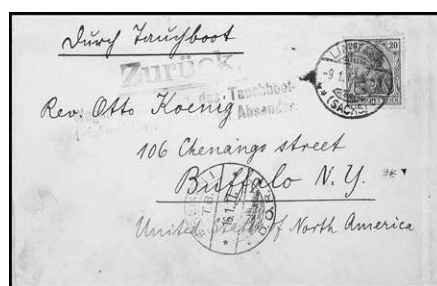 Durch Tauchboot
Zurück
das Tauchboot-
Absender.
Rev. Otto Koenig
106 Chenango street
Buffalo N. Y.
United States of North America
20 20
-9.1.
(SACHS)
16.1.17